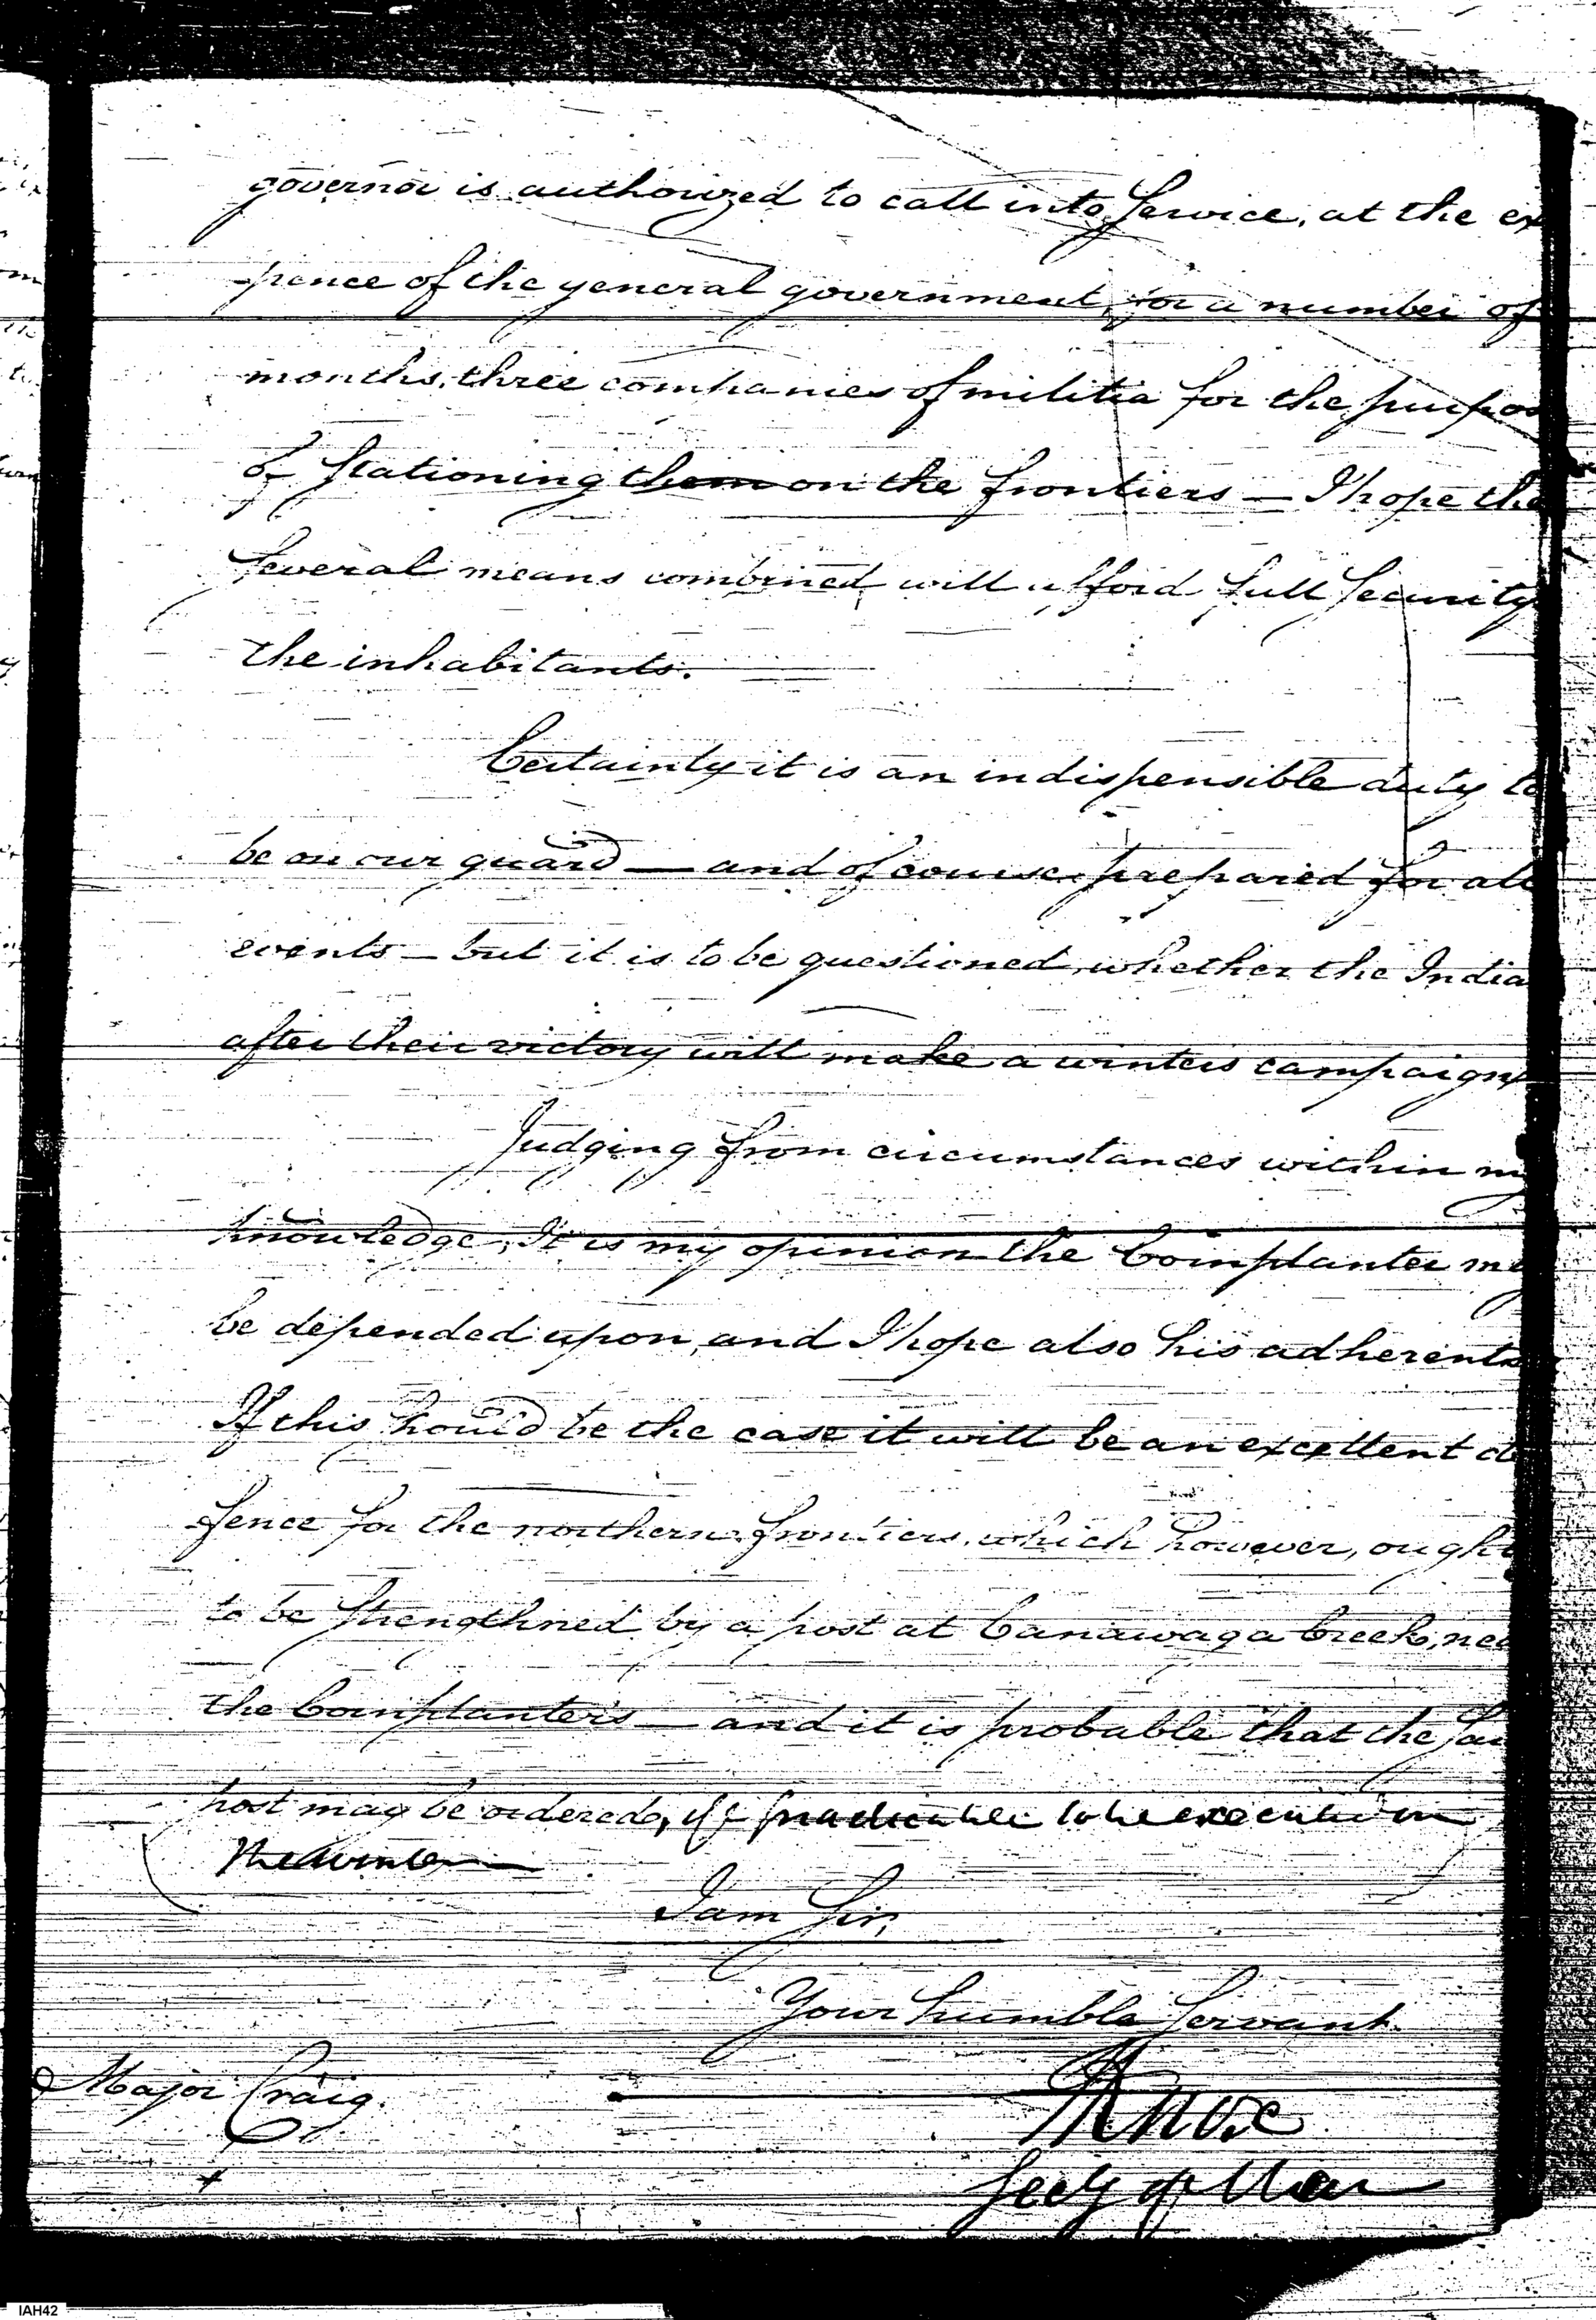 governor is authorized to call into Service, at the ex
pence of the general government, for a number of
months, three companies of militia for the purpos
of stationing them on the frontiers — I hope the
several means combined will afford full security
the inhabitants.
Certainly it is an indispensible duty to
be on our guard — and of course prepared for all
events — but it is to be questioned, whether the India
after their victory will make a winters campaign
Judging from circumstances within my
knowledge, It is my opinion the Cornplanter may
be depended upon, and I hope also his adherents
If this should be the case it will be an excellent de
fence for the northern frontiers, which however, ought
to be strengthned by a post at Canawaga Creek, nea
the Cornplanters — and it is probable that the sai
post may be ordered, if practicable to be execution
the winter
I am Sir,
Your humble Servant
HKnox
Secy of War
Major Craig.
IAH42